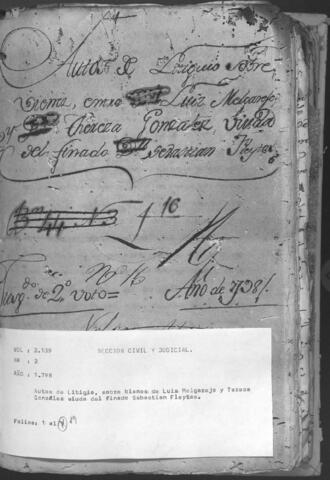 Autos de Litiguio sobre
vienes, entre Luis Melgarejo
y Thereza Gonzalez, Viuda
del finado Sebastian Fleytas
N. 16
Juzg.do de 2.o voto = Año de 1798
VOL : 2.139 SECCION CIVIL Y JUDICIAL.
Nº : 2
AÑO : 1.798
Autos de Litigio, sobre bienes de Luis Melgarejo y Teresa
González viuda del finado Sebastian Fleytas.
Folios: 1 al